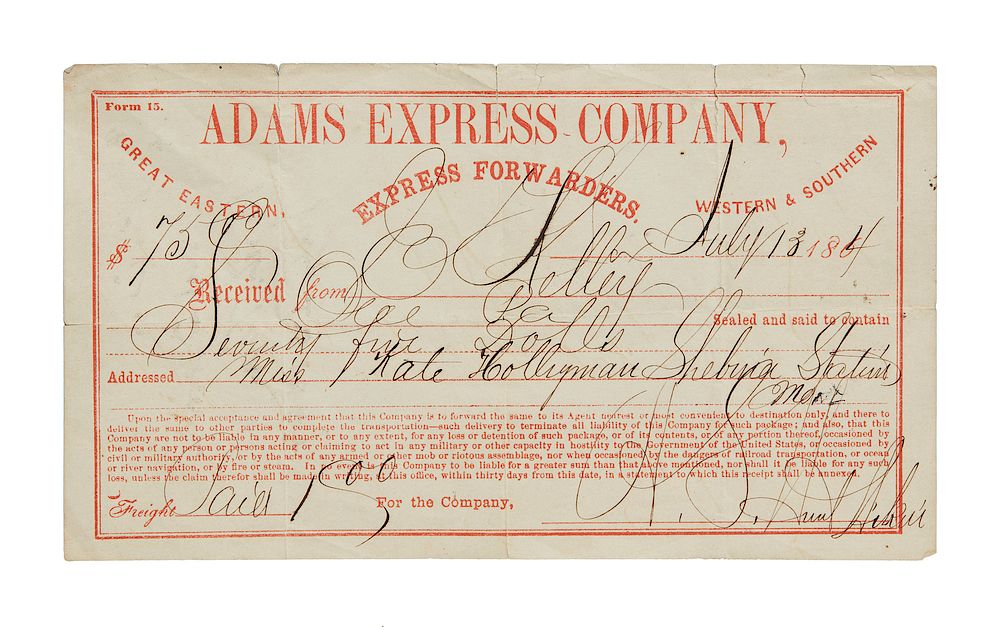 Form 15.
ADAMS EXPRESS COMPANY,
GREAT EASTERN,
EXPRESS FORWARDERS.
WESTERN & SOUTHERN
$ 75 July 13 1864
Received from Kelley
One Sealed and said to contain
Seventy five Dolls
Addressed Miss Kate Holliyman Shelbina Station
Upon the special acceptance and agreement that this Company is to forward the same to its Agent nearest or most convenient to destination only, and there to
deliver the same to other parties to complete the transportation—such delivery to terminate all liability of this Company for such package; and also, that this
Company are not to be liable in any manner, or to any extent, for any loss or detention of such package, or of its contents, or of any portion thereof, occasioned by
the acts of any person or persons acting or claiming to act in any military or other capacity in hostility to the Government of the United States, or occasioned by
civil or military authority, or by the acts of any armed or other mob or riotous assemblage, nor when occasioned by the dangers of railroad transportation, or ocean
or river navigation, or by fire or steam. In no event is this Company to be liable for a greater sum than that above mentioned, nor shall it be liable for any such
loss, unless the claim therefor shall be made in writing, at this office, within thirty days from this date, in a statement to which this receipt shall be annexed.
Freight Paid
For the Company,